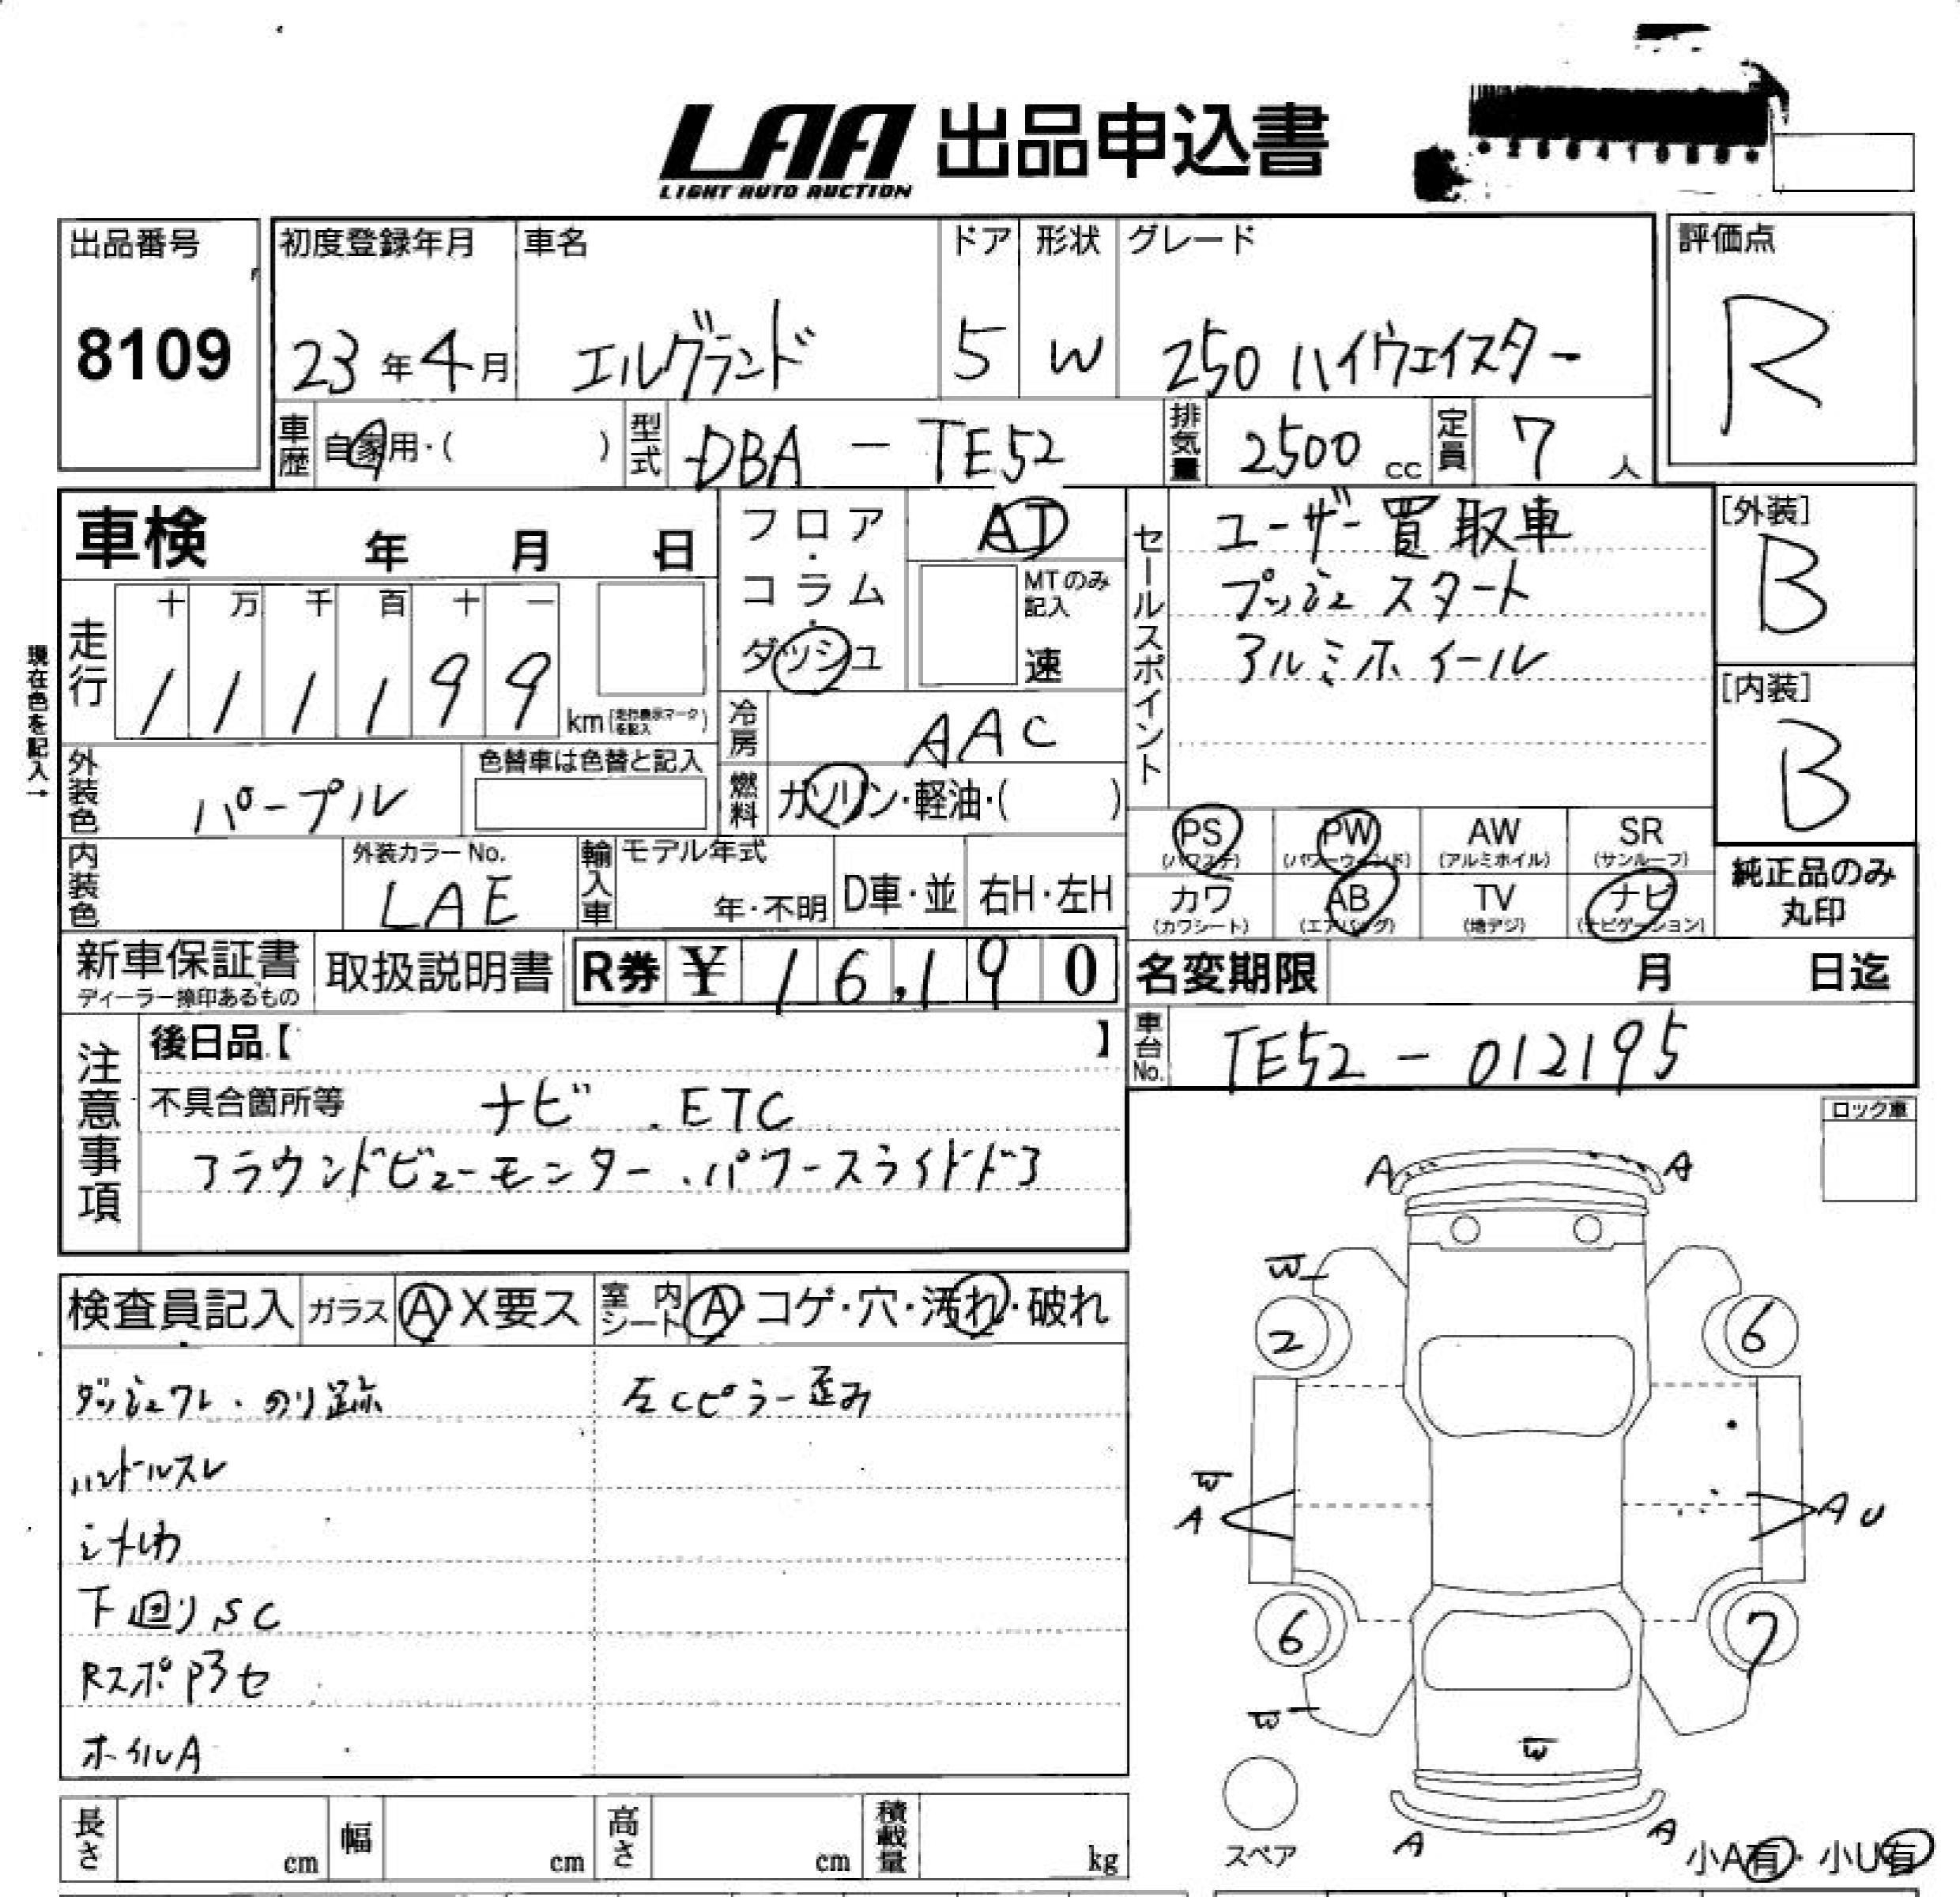 LAA 出品申込書
LIGHT AUTO AUCTION
出品番号 初度登録年月 車名 ドア 形状 グレード 評価点
8109 23年4月 エルグランド 5 W 250 ハイウェイスター R
車歴 自家用・( ) 型式 DBA-TE52 排気量 2500cc 定員 7人
車検 年 月 日
フロア・コラム・ダッシュ AT
MTのみ記入 速
セールスポイント
ユーザー買取車
プッシュスタート
アルミホイール
[外装]
B
[内装]
B
現在色を記入→
走行 十 万 千 百 十 一
111199 km(走行表示マークを記入)
冷房 AAC
外装色 パープル 色替車は色替と記入
燃料 ガソリン・軽油・( )
PS (パワステ) PW (パワーウィンド) AW (アルミホイル) SR (サンルーフ)
カワ (カワシート) AB (エアバッグ) TV (地デジ) ナビ (ナビゲーション)
純正品のみ丸印
内装色 外装カラーNo. LAE 輸入車 モデル年式 年・不明 D車・並 右H・左H
新車保証書 ディーラー捺印あるもの 取扱説明書 R券 ¥ 16,190
名変期限 月 日迄
車台No. TE52-012195
注意事項
後日品【 】
不具合箇所等 ナビ.ETC
アラウンドビューモニター.パワースライドドア
ロック車
検査員記入 ガラス A・X要ス 室内シート A・コゲ・穴・汚れ・破れ
ダッシュワレ・のり跡 左Cピラー歪み
ハンドルスレ
シナしわ
下廻りSC
Rスポ
ホイルA
A A
W
2 6
W
A A U
6 7
W W
スペア
A A
小A有・小U有
長さ cm 幅 cm 高さ cm 積載量 kg